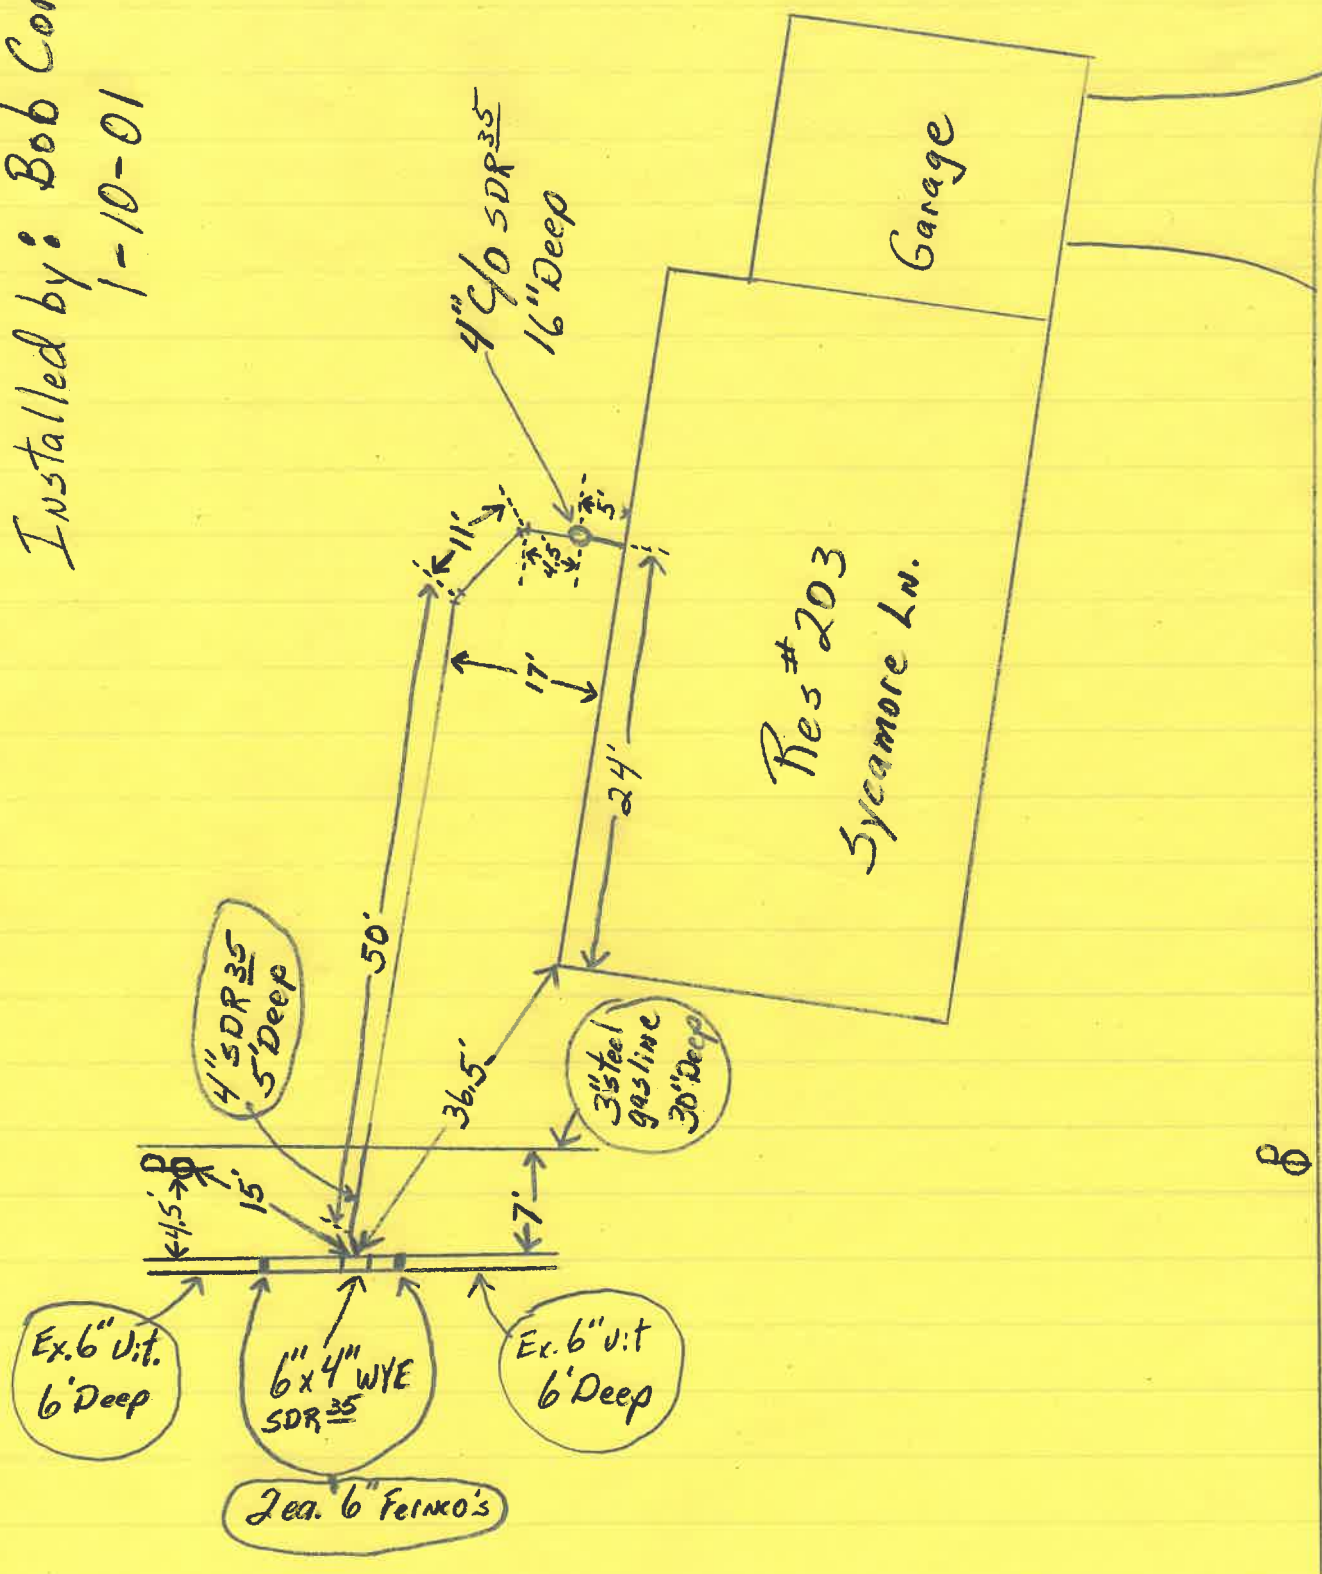 Installed by: Bob
1-10-01
4" C/O SDR 35
16" Deep
Garage
11'
4.5'
5'
17'
24'
Res # 203
Sycamore LN.
50'
4" SDR 35
5' Deep
36.5'
3" steel
gas line
30" Deep
4.5'
15'
7'
Ex. 6" Vit.
6' Deep
6" x 4" WYE
SDR 35
Ex. 6" Vit
6' Deep
2 ea. 6" Fernco's